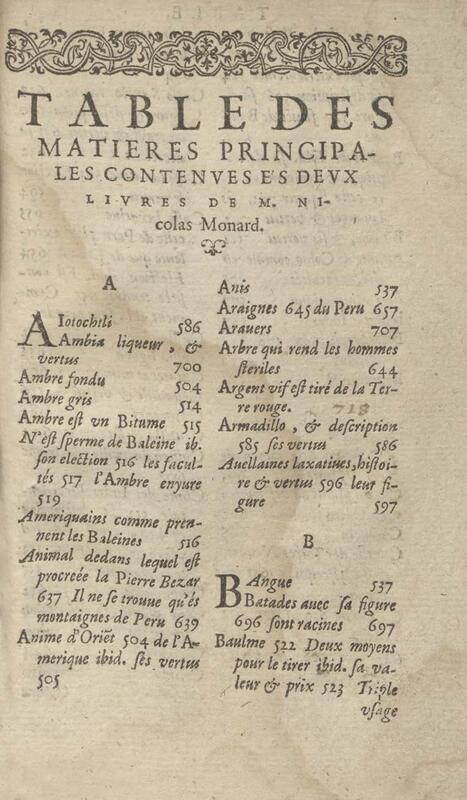 TABLE DES
MATIERES PRINCIPA-
LES CONTENVES ES DEVX
LIVRES DE M. NI-
colas Monard.
A
AIotochtli 586
Ambia liqueur, &
vertus 700
Ambre fondu 504
Ambre gris 514
Ambre est vn Bitume 515
N'est sperme de Baleine ib.
son election 516 les facul-
tés 517 l'Ambre enyure
519
Ameriquains comme pren-
nent les Baleines 516
Animal dedans lequel est
procreée la Pierre Bezar
637 Il ne se trouue qu'és
montaignes de Peru 639
Anime d'Oriẽt 504 de l'A-
merique ibid. ses vertus
505
Anis 537
Araignes 645 du Peru 657
Arauers 707
Arbre qui rend les hommes
steriles 644
Argent vif est tiré de la Ter-
re rouge. 718
Armadillo, & description
585 ses vertus 586
Auellaines laxatiues, histoi-
re & vertus 596 leur fi-
gure 597
B
BAngue 537
Batades auec sa figure
696 sont racines 697
Baulme 522 Deux moyens
pour le tirer ibid. sa va-
leur & prix 523 Triple
vsage